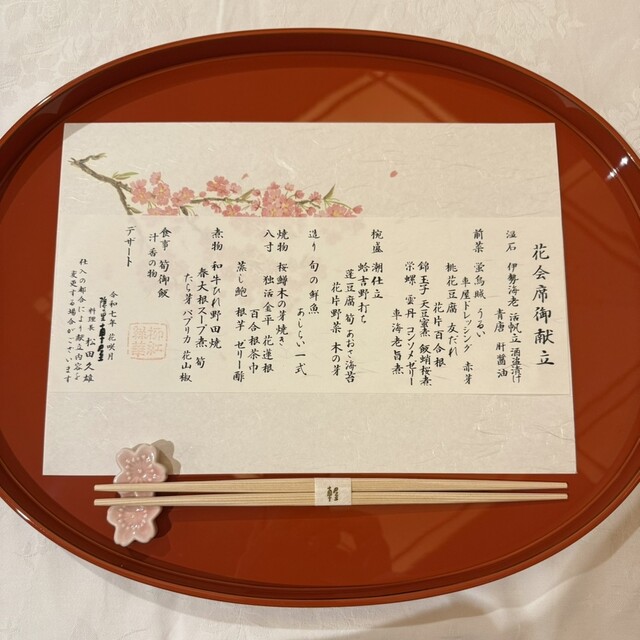 花会席御献立
温石 伊勢海老 活帆立 酒盗漬け
青唐 肝醤油
前菜 蛍烏賊 うるい
車屋ドレッシング 赤芽
桃花豆腐 友だれ
花片百合根
錦玉子 天豆蜜煮 飯蛸桜煮
栄螺 雲丹 コンソメゼリー
車海老旨煮
椀盛 潮仕立
蛤吉野打ち
蓬豆腐 筍 あおさ海苔
花片野菜 木の芽
造り 旬の鮮魚
あしらい一式
焼物 桜鱒木の芽焼き
八寸 独活金平 花蓮根
百合根茶巾
蒸し鮑 根芋 ゼリー酢
煮物 和牛ひれ野田焼
春大根スープ煮 筍
たら芽 パプリカ 花山椒
食事 筍御飯
汁 香の物
デザート
令和七年 花咲月
料理長 松田久雄
仕入の都合により献立内容を
変更する場合がございます